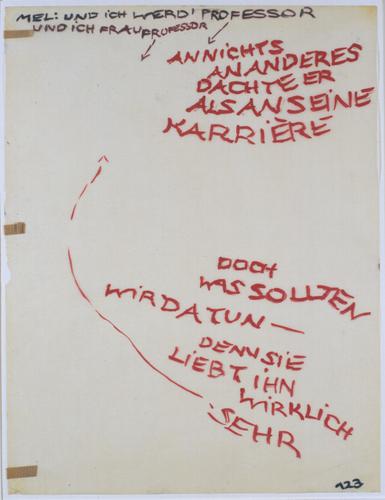 MEL: UND ICH WERD' PROFESSOR
UND ICH FRAU PROFESSOR
AN NICHTS
AN ANDERES
DACHTE ER
ALS AN SEINE
KARRIÈRE
DOCH
WAS SOLLTEN
WIR DA TUN —
DENN SIE
LIEBT IHN
WIRKLICH
SEHR
123